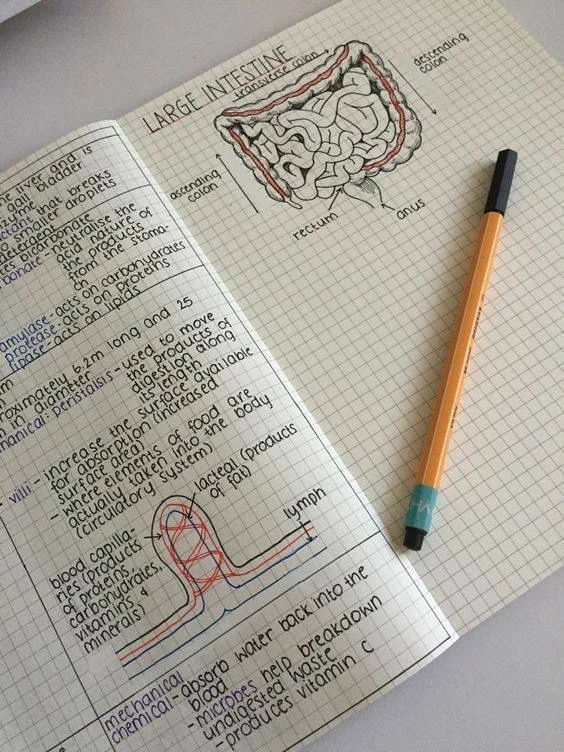 LARGE INTESTINE
transverse colon
descending colon
ascending colon
rectum
anus
liver and is
gall bladder
that breaks
smaller droplets
detergent
bicarbonate
neutralise the
acid nature of
the products
from the stoma-
ch
amylase - acts on carbohydrates
protease - acts on proteins
lipase - acts on lipids
6.2m long and 25
in diameter
peristalsis - used to move
the products of
digestion along
its length
villi - increase the surface available
for absorption (increased
surface area)
- where elements of food are
actually taken into the body
(circulatory system)
lacteal (products
of fat)
lymph
blood capilla-
ries (products
of proteins,
carbohydrates,
vitamins &
minerals)
mechanical - absorb water back into the
blood
chemical - microbes help breakdown
undigested waste
- produces vitamin C